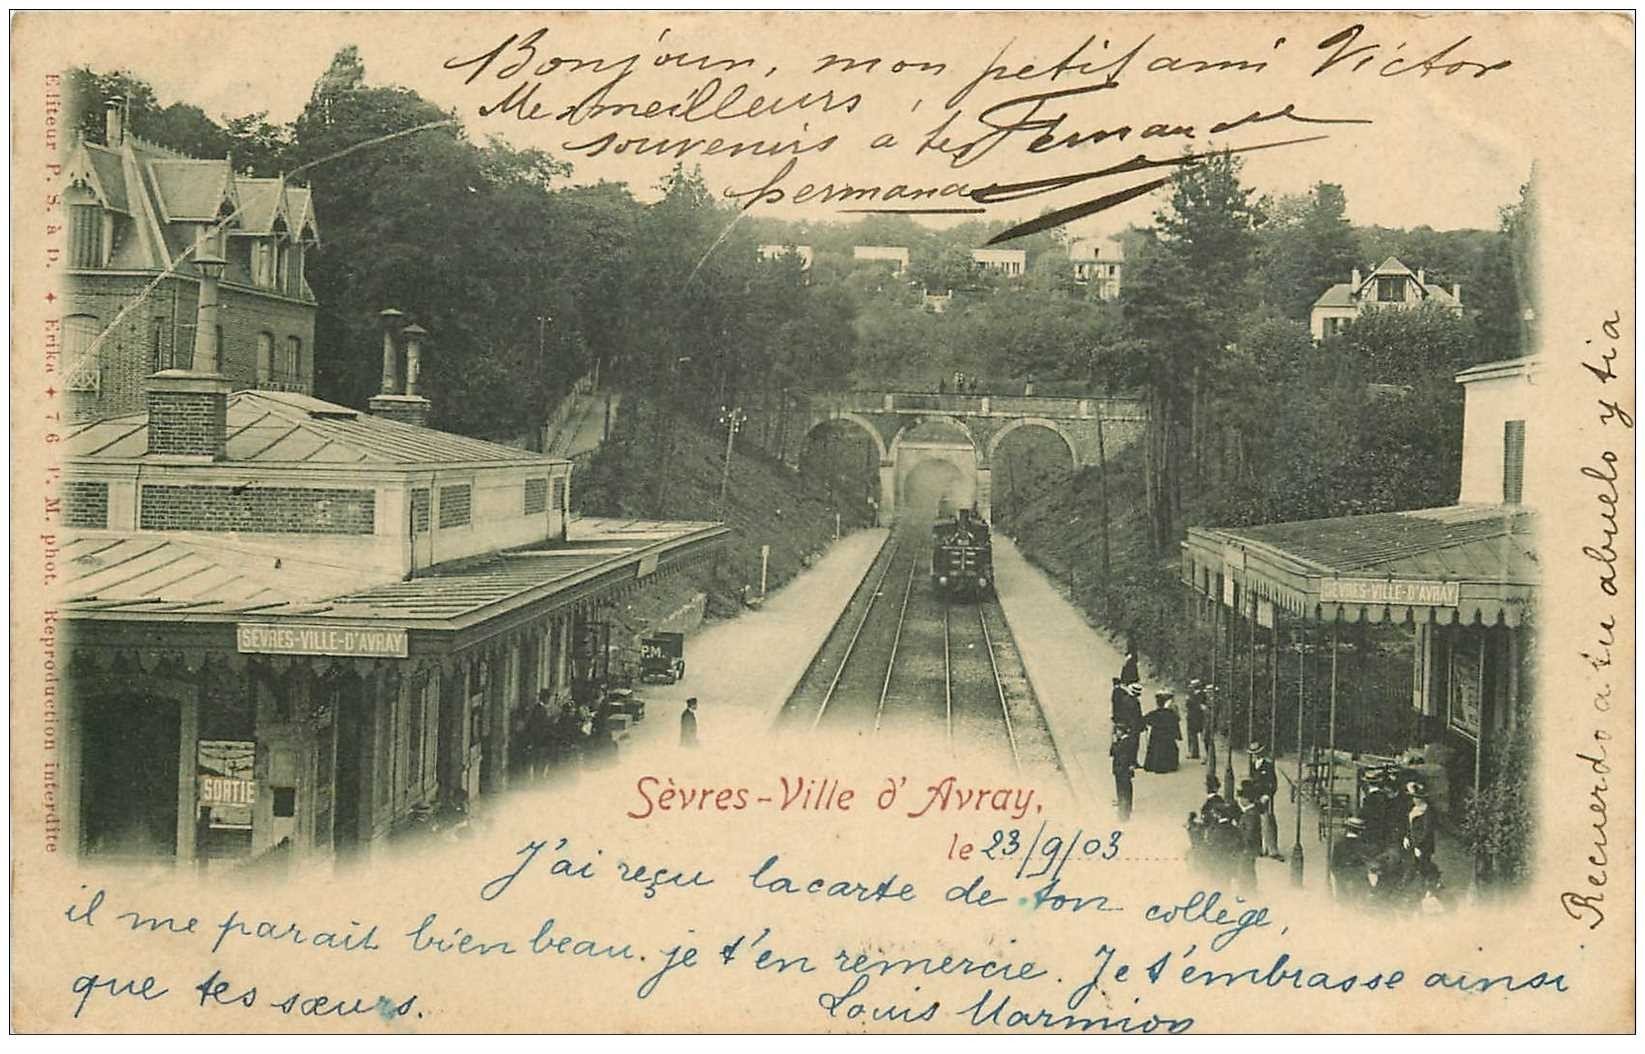 Bonjour, mon petit ami Victor
Mes meilleurs
souvenirs a tes Fernande
hermanas
Editeur P. S. à D. ✦ Erika ✦ 76 P. M. phot. Reproduction interdite
SÈVRES-VILLE-D'AVRAY
SÈVRES-VILLE-D'AVRAY
P.M.
SORTIE
Sèvres-Ville d'Avray,
le 23/9/03
J'ai reçu la carte de ton collège,
il me parait bien beau. je t'en remercie. Je t'embrasse ainsi
que tes sœurs.
Louis Marmion
Recuerdo a tu abuelo y tia